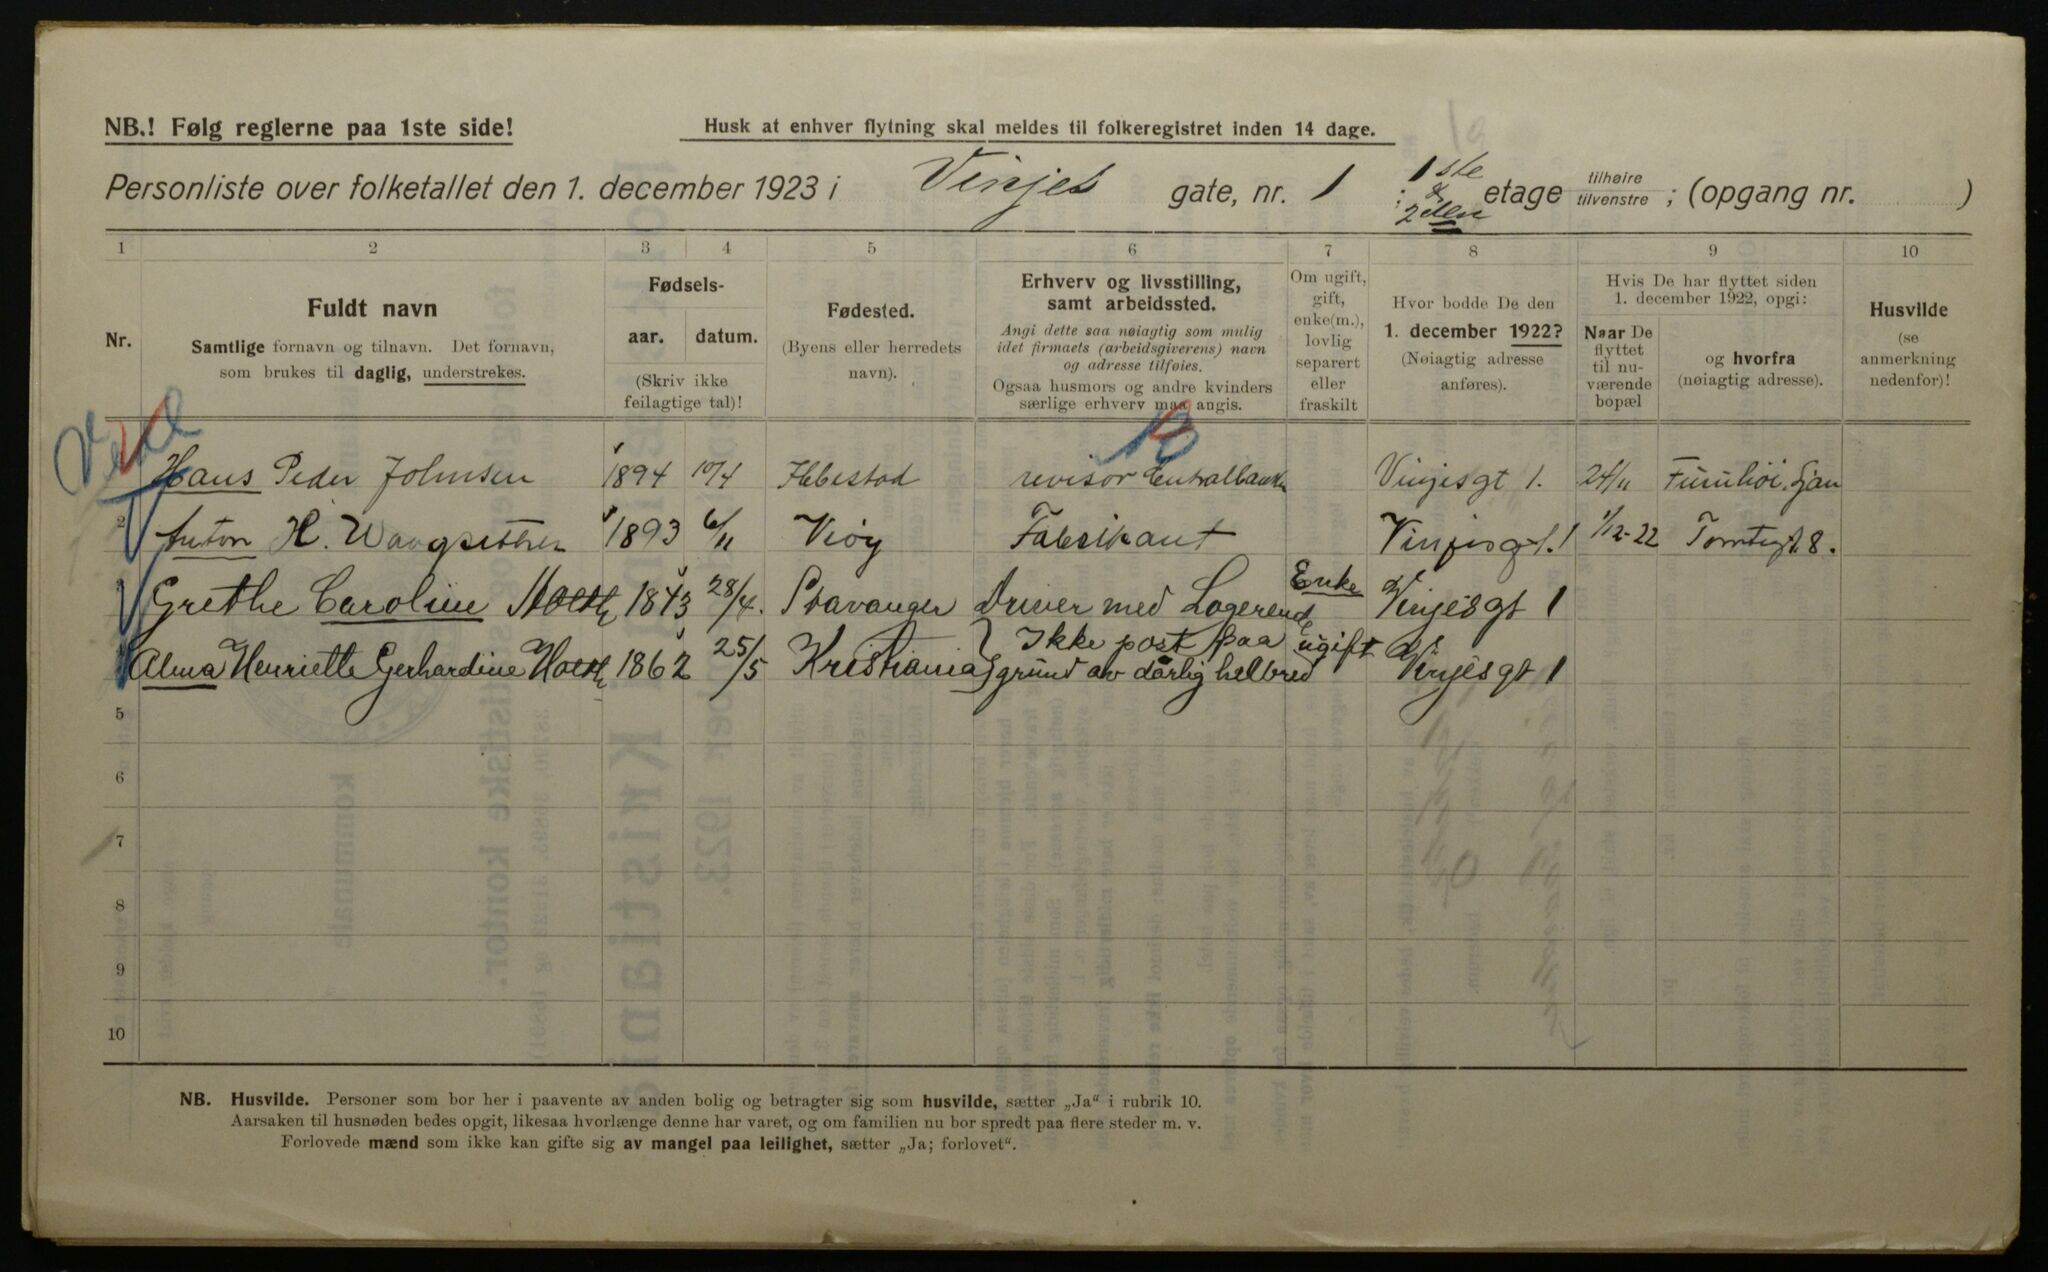 NB.! Følg reglerne paa 1ste side!
Husk at enhver flytning skal meldes til folkeregistret inden 14 dage.
Personliste over folketallet den 1. december 1923 i Vinjes gate, nr. 1 ; 1ste & 2den etage tilhøire tilvenstre ; (opgang nr. )
1 2 3 4 5 6 7 8 9 10
Nr.
Fuldt navn
Samtlige fornavn og tilnavn. Det fornavn,
som brukes til daglig, understrekes.
Fødsels-
aar. datum.
(Skriv ikke
feilagtige tal)!
Fødested.
(Byens eller herredets
navn).
Erhverv og livsstilling,
samt arbeidssted.
Angi dette saa nøiagtig som mulig
idet firmaets (arbeidsgiverens) navn
og adresse tilføies.
Ogsaa husmors og andre kvinders
særlige erhverv maa angis.
Om ugift,
gift,
enke(m.),
lovlig
separert
eller
fraskilt
Hvor bodde De den
1. december 1922?
(Nøiagtig adresse
anføres).
Hvis De har flyttet siden
1. december 1922, opgi:
Naar De
flyttet
til nu-
værende
bopæl
og hvorfra
(nøiagtig adresse).
Husvilde
(se
anmerkning
nedenfor)!
Hans Peder Johnsen 1894 10/4 Ibbestad revisor Centralbanken Vinjesgt 1. 24/11
2 Anton H. 1893 6/11 Veøy Fabrikant Vinjesgt. 1 1/12-22 Tomtegt. 8.
Grethe Caroline Holth 1843 28/4. Stavanger Driver med Logerende Enke Vinjesgt 1
Alma Henriette Gerhardine Holth 1862 25/5 Kristiania Ikke post paa ugift Vinjesgt 1
grund av dårlig helbred
5
6
7
8
9
10
NB. Husvilde. Personer som bor her i paavente av anden bolig og betragter sig som husvilde, sætter „Ja“ i rubrik 10.
Aarsaken til husnøden bedes opgit, likesaa hvorlænge denne har varet, og om familien nu bor spredt paa flere steder m. v.
Forlovede mænd som ikke kan gifte sig av mangel paa leilighet, sætter „Ja; forlovet“.